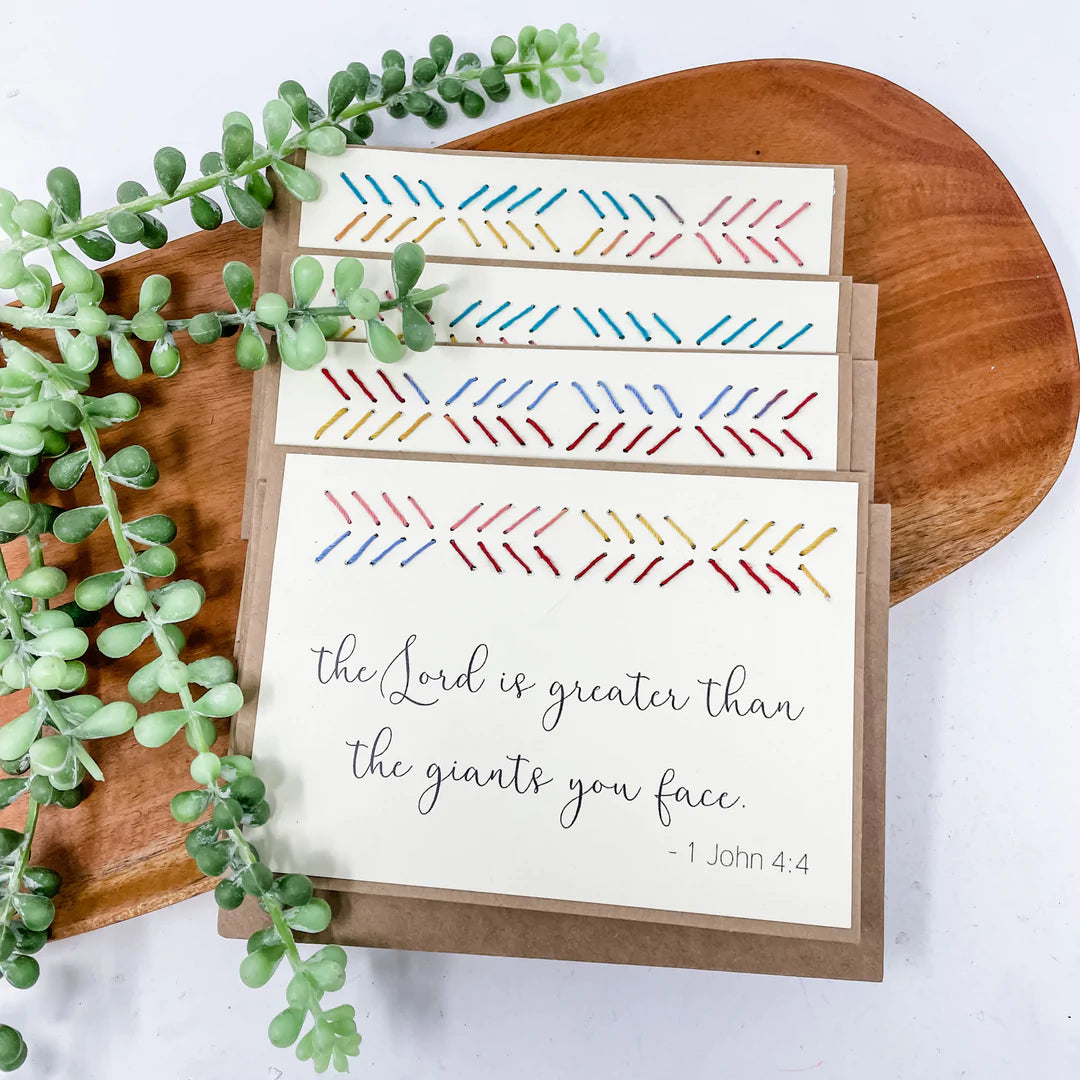 the Lord is greater than
the giants you face.
- 1 John 4:4